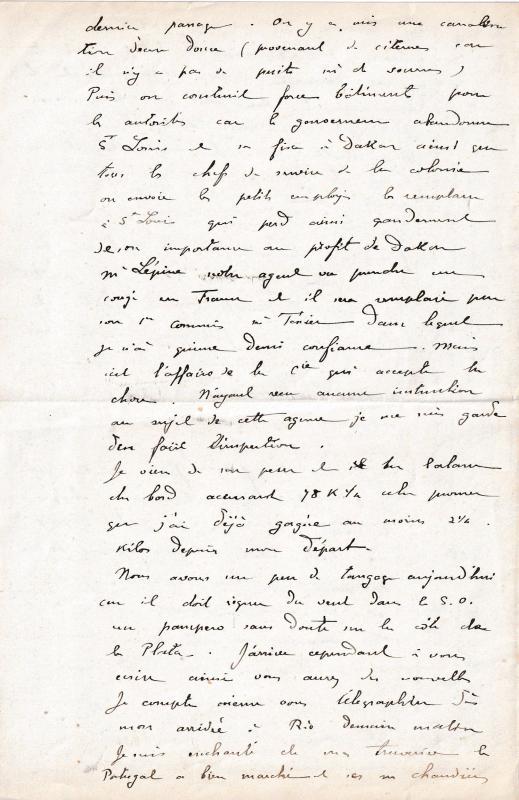 dernier passage. On y a mis une canalisa
tion d'eau douce (provenant de citernes car
il n'y a pas de puits ni de sources)
Puis on construit force bâtiments pour
les autorités car le gouverneur abandonne
St Louis et se fixe à Dakar ainsi que
tous les chefs de service de la colonie
on envoie les petits employés les remplacer
à St Louis qui perd ainsi grandement
de son importance au profit de Dakar
Mr Lépine notre agent va prendre un
congé en France et il sera remplacé par
son 1er commis Mr Tissier dans lequel
je n'ai guère confiance. Mais
c'est l'affaire de la Cie qui accepte la
chose. N'ayant reçu aucune instruction
au sujet de cette agence je me suis gardé
d'en faire l'inspection.
Je viens de me peser et la balance
du bord accusant 78 K 1/2 cela prouve
que j'ai déjà gagné au moins 2 1/2
kilos depuis mon départ.
Nous avons un peu de tangage aujourd'hui
car il doit régner du vent dans le S.O.
un pampero sans doute sur la côte de
la Plata. J'arrive cependant à vous
écrire ainsi vous aurez des nouvelles
Je compte même vous télégraphier dès
mon arrivée à Rio demain matin
Je suis enchanté de ma traversée le
Portugal a bien marché et ses chaudières